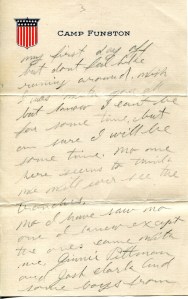 3
CAMP FUNSTON
my first day off
but dont feel like
running around, wish
I was
but know I cant be
for some time, but
am sure I will be
some time. no one
here seems to think
we will ever see the
trenches.
No I have saw no
one I know except
the ones came with
me, Jinnie Pittman
and Josh Clark and
some boys from